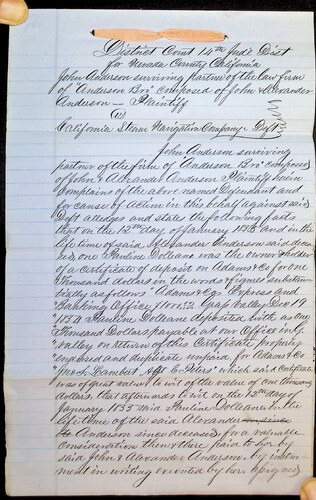 District Court 14th Jud'l Dist
for Nevada County California
John Anderson surviving partner of the law firm
of "Anderson Bro" composed of John & Alexander
Anderson — Plaintiff
vs
California Steam Navigation Company Deft
John Anderson surviving
partner of the firm of "Anderson Bro" composed
of John & Alexander Anderson Plaintiff herein
complains of the above named Defendant and
for cause of action in this behalf against said
Deft alledges and states the following facts
that on the 13th day of January 1855 and in the
life time of said Alexander Anderson said decea
sed, one Pauline Dolleans was the owner & holder
of a certificate of deposit on Adams & Co for one
Thousand dollars in the words & figures substan
tially as follows "Adams & Co's Express and
Banking Office, Grass Valley Dec 19
1854 Pauline Dolleans deposited with us One
Thousand Dollars payable at our Office in G.
valley on return of this Certificate properly
endorsed and duplicate unpaid, for Adams & Co
Jno. F. Lambert Agt C. Peters" which said Certificate
was of great value to wit of the value of one thousand
dollars. that afterwards to wit on the 13th day of
January 1855 said Pauline Dolleans in the
lifetime of the said Alexander
Anderson since deceased for a valuable
consideration then & there paid to her by
said John & Alexander Anderson by instru
ment in writing executed by her assigned